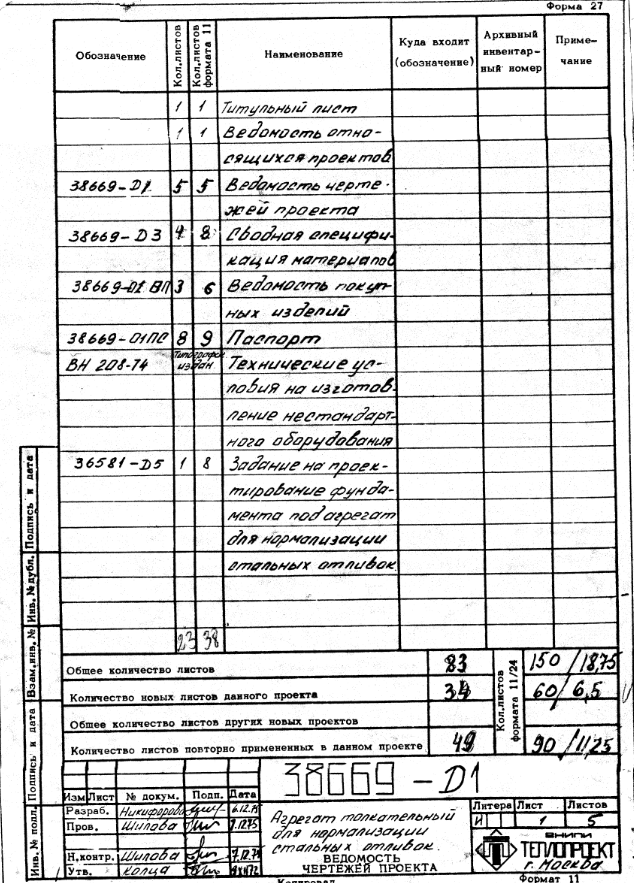 Форма 27
Обозначение
Кол.листов
Кол.листов формата 11
Наименование
Куда входит (обозначение)
Архивный инвентар-ный номер
Приме-чание
1 1 Титульный лист
1 1 Ведомость отно-
сящихся проектов
38669-D1 5 5 Ведомость черте-
жей проекта
38669-D3 4 8 Сводная специфи-
кация материалов
38669-D2 ВП 3 6 Ведомость покуп-
ных изделий
38669-01ПС 8 9 Паспорт
ВН 208-74 Типограф. издан Технические ус-
ловия на изготов-
ление нестандарт-
ного оборудования
36581-D5 1 8 Задание на проек-
тирование фунда-
мента под агрегат
для нормализации
стальных отливок
23 38
Общее количество листов 83
Количество новых листов данного проекта 34
Общее количество листов других новых проектов
Количество листов повторно примененных в данном проекте 49
Кол.листов формата 11/24
150 / 18,75
60 / 6,5
90 / 11,25
Подпись и дата
Инв. № дубл.
Взам.инв. №
Подпись и дата
Инв. № подл.
38669-D1
Изм Лист № докум. Подп. Дата
Разраб. Никифорова 6.12.75
Пров. Шилова 7.12.75
Н.контр. Шилова
Утв.
Агрегат толкательный
для нормализации
стальных отливок.
ВЕДОМОСТЬ
ЧЕРТЕЖЕЙ ПРОЕКТА
Литера Лист Листов
И 1 5
ВНИПИ
ТЕПЛОПРОЕКТ
г. Москва
Копировал
Формат 11